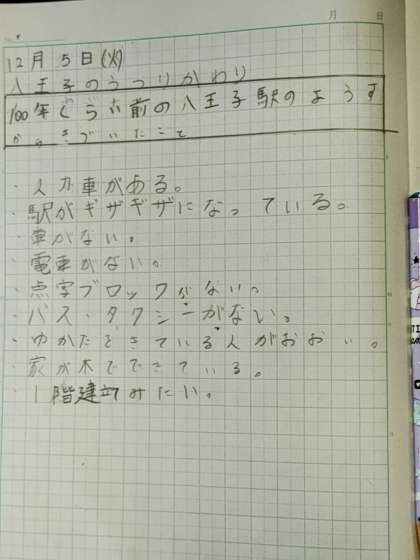 月 日
12月5日(火)
八王子のうつりかわり
100年くらい前の八王子駅のようす
からきづいたこと
・人力車がある。
・駅がギザギザになっている。
・車がない。
・電車がない。
・点字ブロックがない。
・バス・タクシーがない。
・ゆかたをきている人がおおい。
・家が木でできている。
・1階建てみたい。